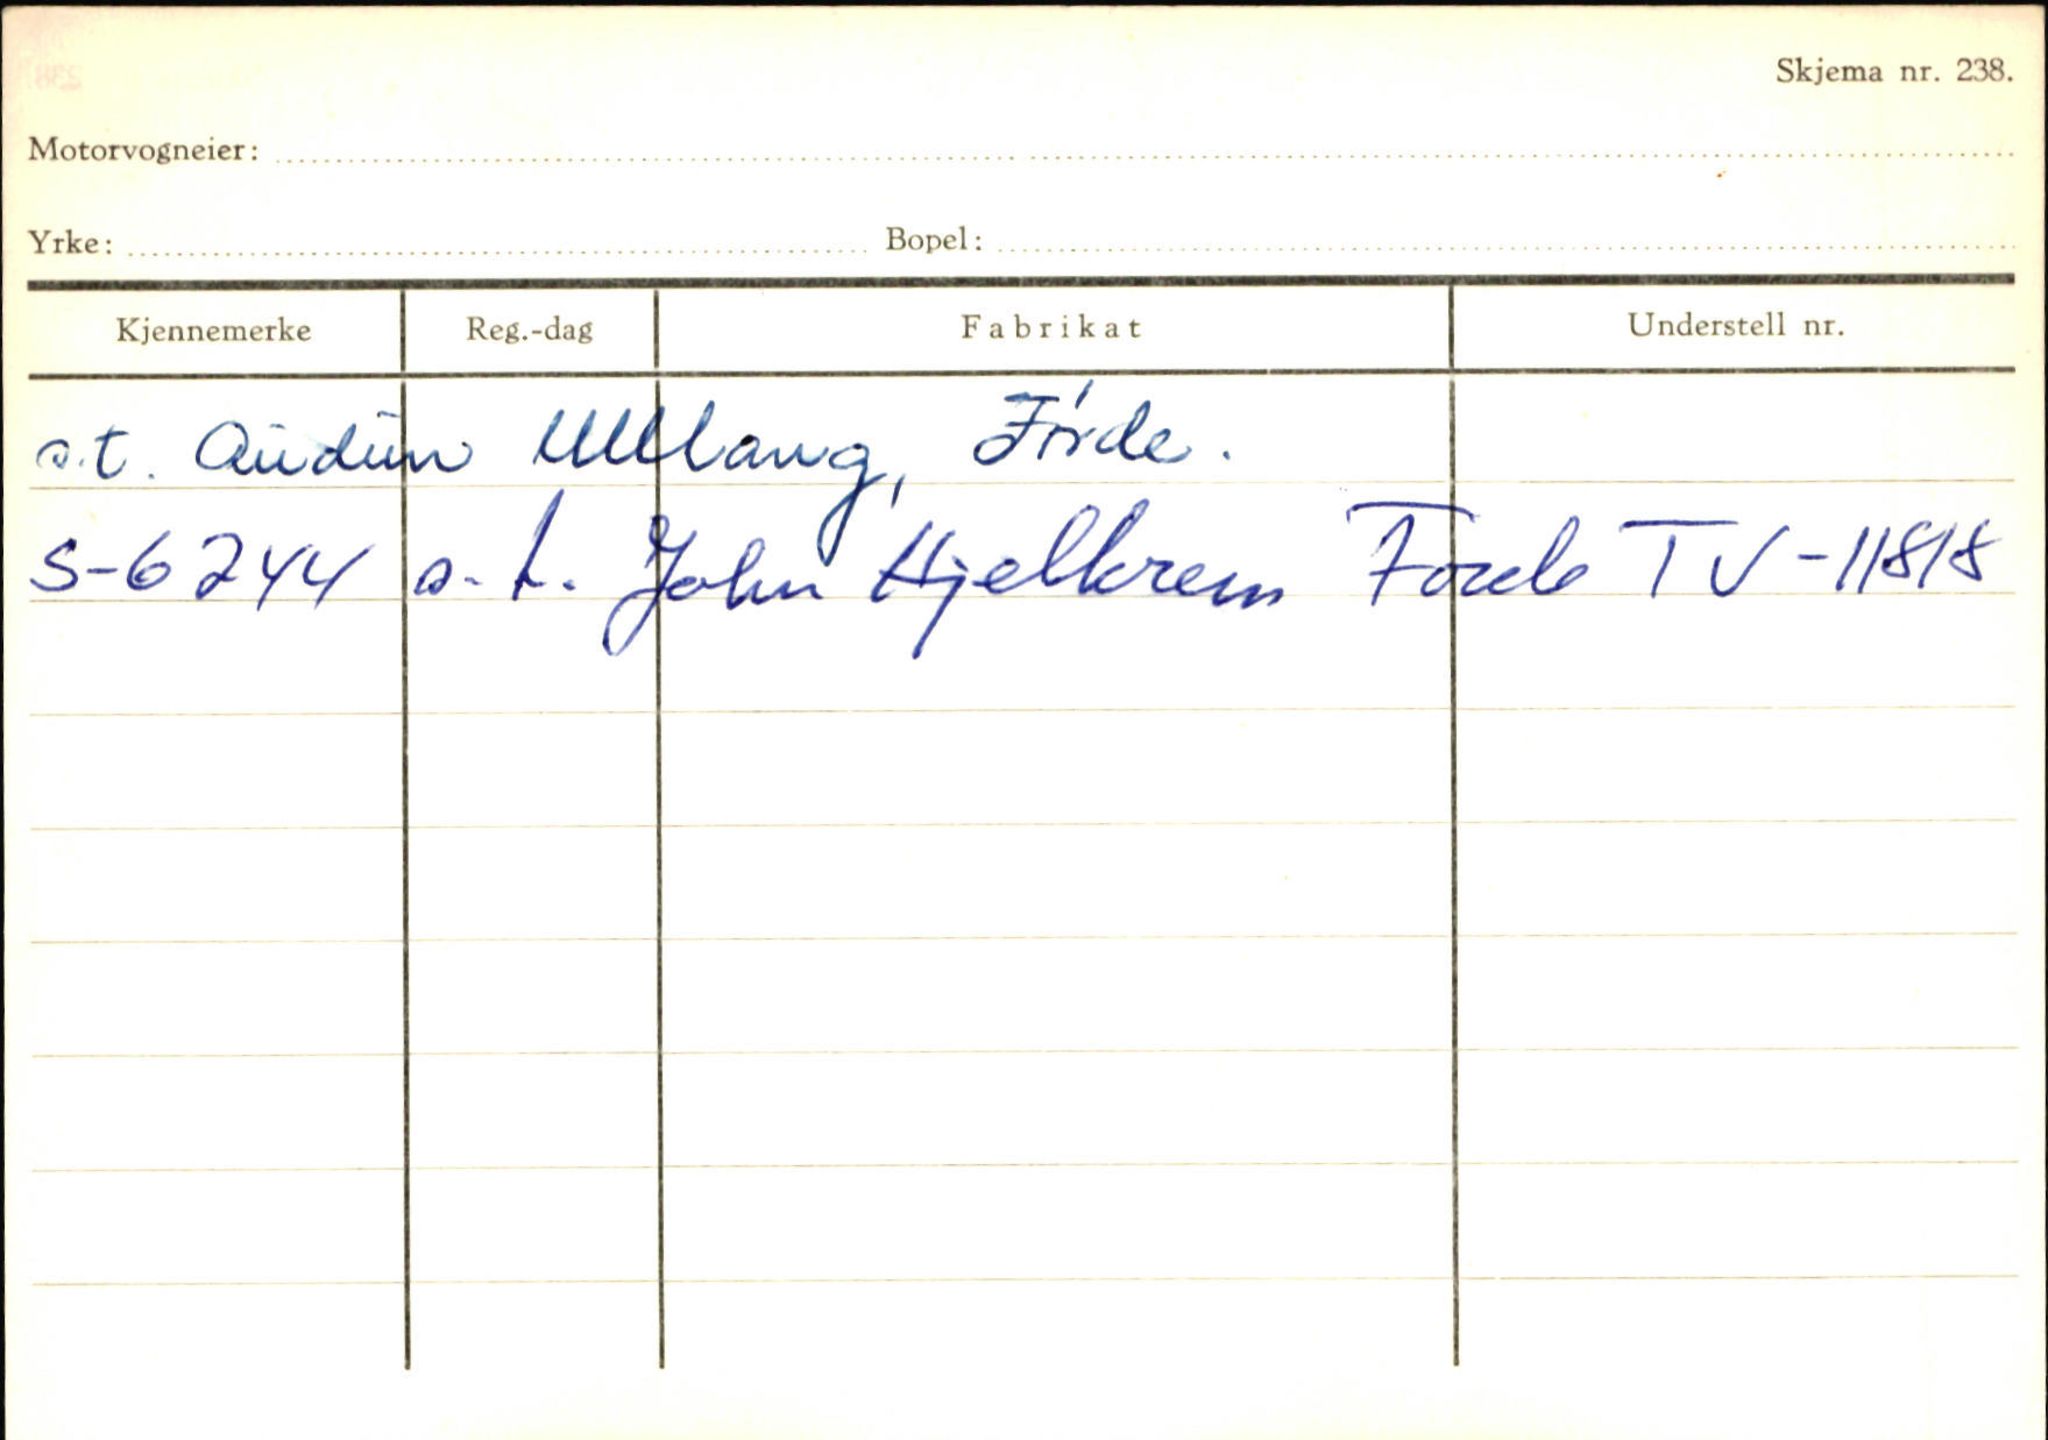 Skjema nr. 238.
Motorvogneier:
Yrke: Bopel:
Kjennemerke Reg.-dag Fabrikat Understell nr.
s.t. Audun Ullang, Førde.
S-6244 s.t. John Hjelkrem Førde TV-11818